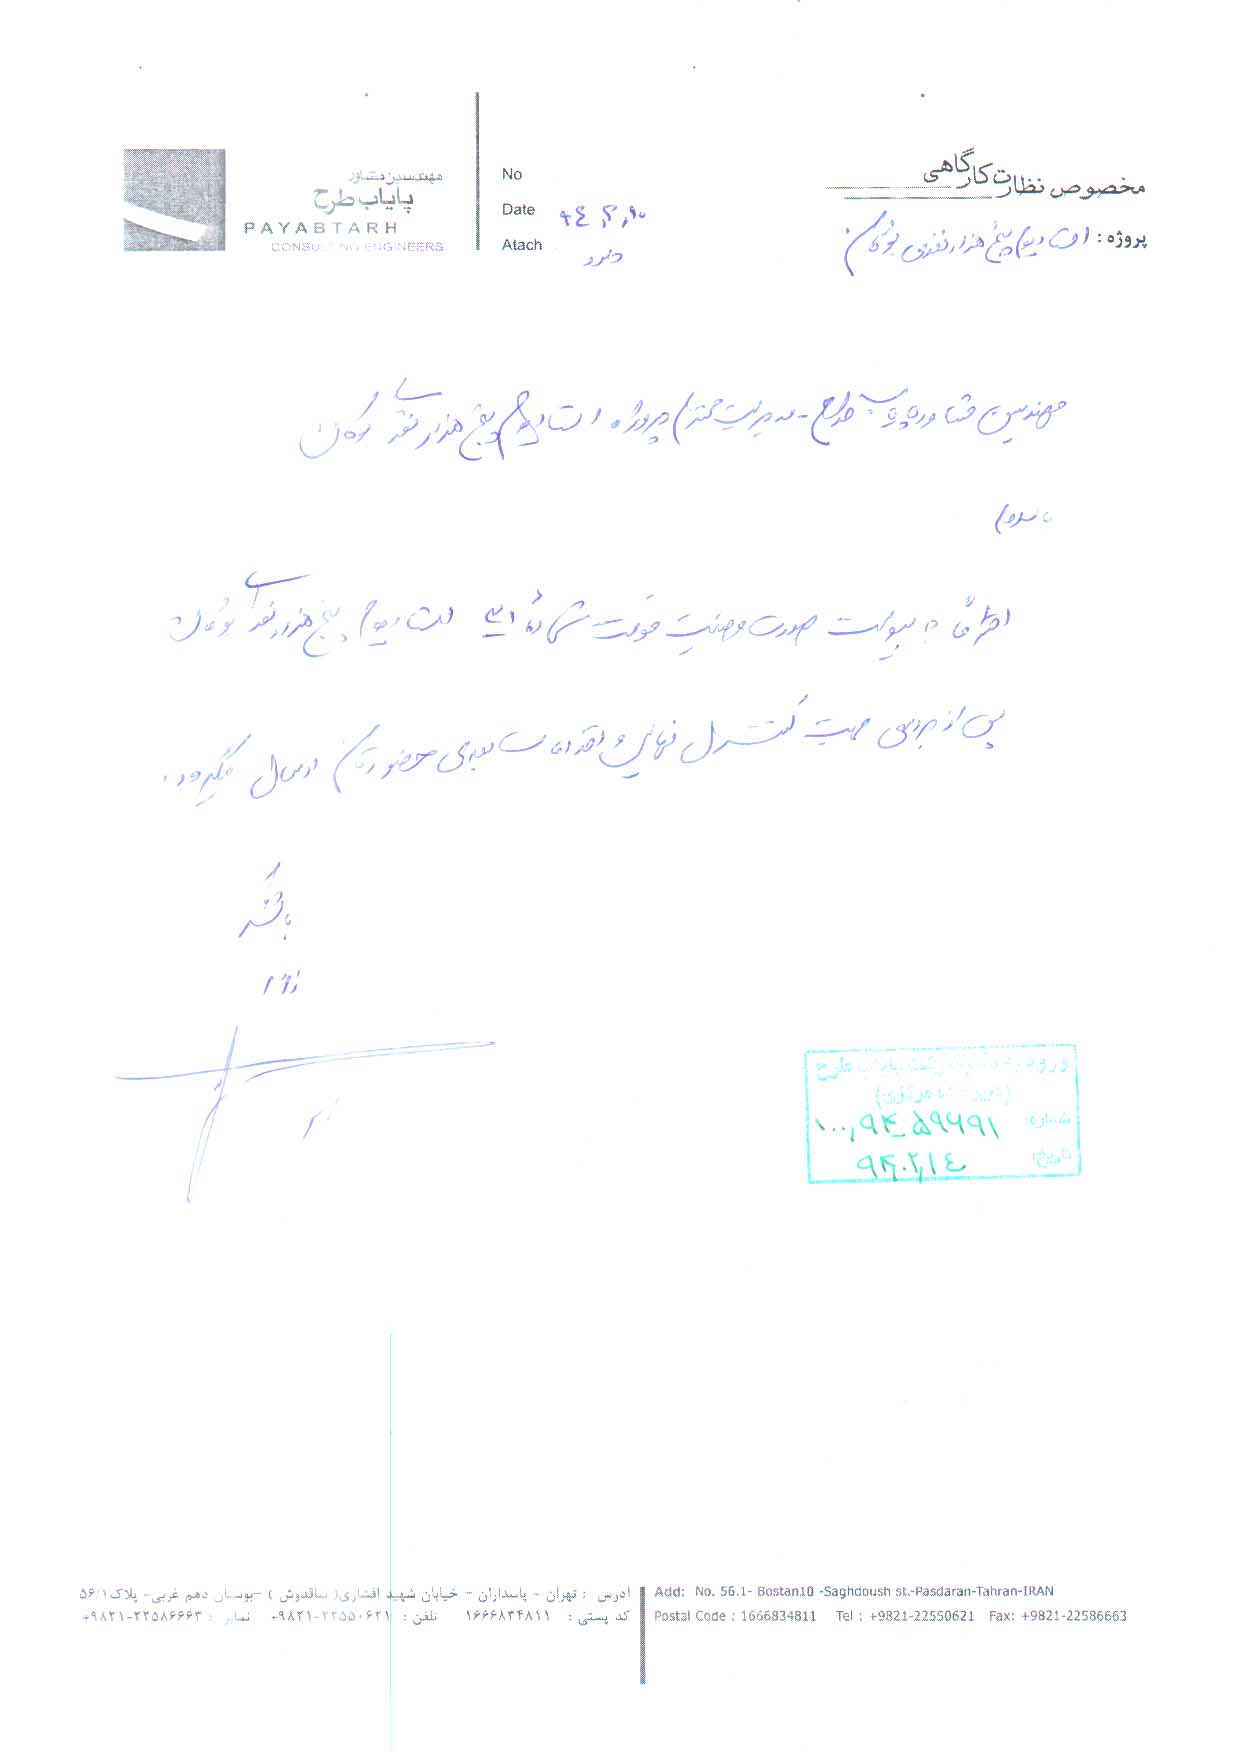 مخصوص نظارت کارگاهی
پروژه : استادیوم پنج هزار نفری بوکان
مهندسین مشاور
پایاب طرح
PAYABTARH
CONSULTING ENGINEERS
No
Date ۹۴،۲،۱۰
Atach دارد
مهندسین مشاور پایاب طرح - مدیریت محترم پروژه استادیوم پنج هزار نفری بوکان
باسلام
احتراماً به پیوست صورت وضعیت موقت شماره استادیوم پنج هزار نفری بوکان
پس از بررسی جهت کنترل نهایی و اقدامات بعدی حضورتان ارسال میگردد.
باتشکر
شماره: ۱۰۰,۹۴_۵۹۶۹۱
تاریخ: ۹۴.۲,۱۴
آدرس : تهران - پاسداران - خیابان شهید افشاری( ساقدوش ) -بوستان دهم غربی- پلاک ۵۶/۱
کد پستی : ۱۶۶۶۸۳۴۸۱۱ تلفن : ۲۲۵۵۰۶۲۱-۹۸۲۱+ نمابر : ۲۲۵۸۶۶۶۳-۹۸۲۱+
Add: No. 56.1- Bostan10 -Saghdoush st.-Pasdaran-Tahran-IRAN
Postal Code : 1666834811 Tel : +9821-22550621 Fax: +9821-22586663